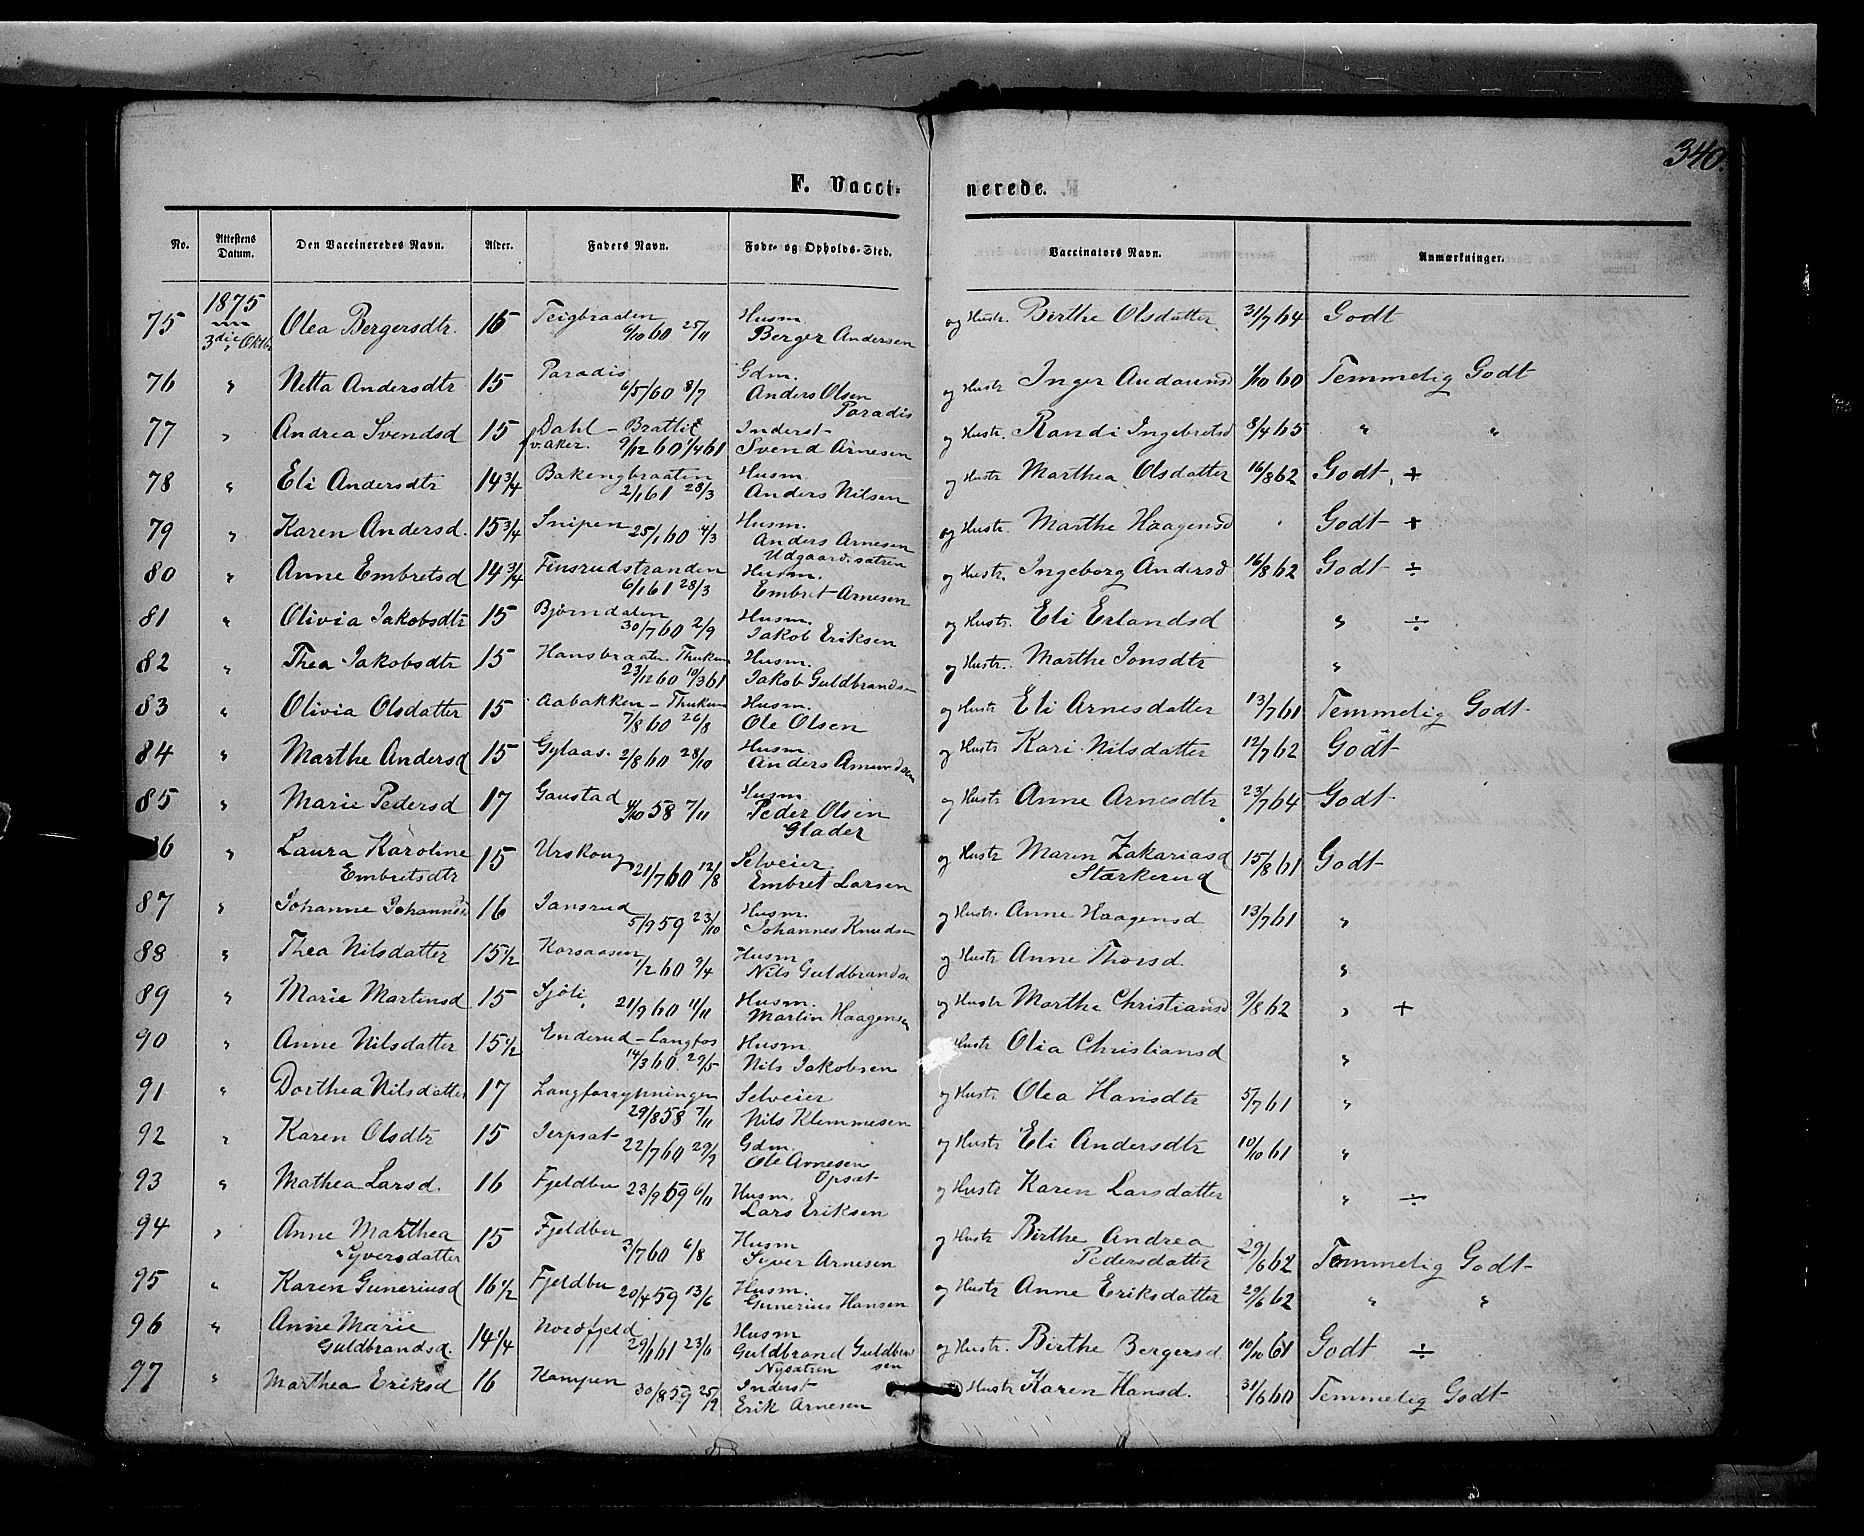 340.
F. Vacci= nerede.
No. Attestens Datum. Den Vaccineredes Navn. Alder. Faders Navn. Føde- og Opholds-Sted. Vaccinators Navn. Anmærkninger.
1875
75 3die Oktbr Olea Bergersdtr. 16 Teigbraaten 6/10 60 25/11 Husm. Berger Andersen og Hustr. Birthe Olsdatter 31/7 64 Godt
76 " Netta Andersdtr 15 Paradis 6/5/60 8/7 Gdm. Anders Olsen Paradis og Hustr Inger Audaunsd 1/10 60 Temmelig Godt
77 " Andrea Svendsd 15 Dahl - Brattlit v. Aker. 9/12 60 1/4 61 Inderst Svend Arnesen og Hustr. Randi Ingebretsd 8/4 65 " "
78 " Eli Andersdtr 14 3/4 Bakengbraaten 2/1 61 28/3 Husm. Anders Nilsen og Hustr Marthea Olsdatter 16/8 62 Godt +
79 " Karen Andersd. 15 3/4 Snipen 25/1 60 4/3 Husm. Anders Arnesen Udgaardsætren og Hustr. Marthe Haagensd Godt +
80 " Anne Embretsd 14 3/4 Finsrudstranden 6/1 61 28/3 Husm. Embret Arnesen og Hustr. Ingeborg Andersd 16/8 62 Godt ÷
81 " Olivia Jakobsdtr 15 Bjørndalen 30/7 60 2/9 Husm. Jakob Eriksen og Hustr. Eli Erlandsd " ÷
82 " Thea Jakobsdtr 15 Hansbraaten Thukun 23/12 60 10/3 61 Husm. Jakob Guldbrandsen og Hustr. Marthe Jonsdtr "
83 " Olivia Olsdatter 15 Aabakken - Thukun 7/8 60 26/8 Husm. Ole Olsen og Hustr Eli Arnesdatter 13/7 61 Temmelig Godt
84 " Marthe Andersd 15 Gylaas. 2/8 60 28/10 Husm. Anders Amundsen og Hustr Kari Nilsdatter 12/7 62 Godt
85 " Marie Pedersd 17 Gaustad 4/10 58 7/11 Husm. Peder Olsen Glader og Hustr Anne Arnesdtr 23/7 64 Godt
86 " Laura Karoline Embretsdtr 15 Urskoug 21/7 60 12/8 Selveier Embret Larsen og Hustr Maren Zakariasd Stærkerud 15/8 61 Godt
87 " Johanne Johannesd 16 Jansrud 5/9 59 23/10 Husm. Johannes Knudsen og Hustr. Anne Haagensd 13/7 61 "
88 " Thea Nilsdatter 15 1/2 Korsaasen 1/2 60 9/4 Husm Nils Guldbrandsn og Hustr Anne Thorsd. "
89 " Marie Martinsd 15 Sjøli 21/9 60 11/11 Husm. Martin Haagensen og Hustr Marthe Christiansd 9/8 62 " +
90 " Anne Nilsdatter 15 1/2 Enderud - Langfos 14/3 60. 29/5 Husm Nils Jakobsen Hustr Olia Christiansd "
91 " Dorthea Nilsdatter 17 Langfosrypningen 29/8 58 7/11 Selveier Nils Klemmesen og Hustr Olea Hansdtr 5/7 61 "
92 " Karen Olsdtr 15 Jerpsæt 22/7 60 29/9 Gdm. Ole Arnesen Opsæt og Hustr Eli Andersdtr 10/10 61 "
93 " Mathea Larsd. 16 Fjeldbu 23/9 59 6/11 Husm. Lars Eriksen og Hustr Karen Larsdatter " ÷
94 " Anne Marthea Syversdatter 15 Fjeldbu 3/7 60 6/8 Husm Syver Arnesen og Hustr Birthe Andrea Pedersdatter 29/6 62 Temmelig Godt
95 " Karen Guneriusd 16 1/2 Fjeldbu 20/4 59 13/6 Husm. Gunerius Hansen og Hustr Anne Eriksdatter 29/6 62 " "
96 " Anne Marie Guldbrandsd. 14 1/4 Nordfjeld 29/1 61 23/6 Husm Guldbrand Guldbrandsen Nysætren og Hustr. Birthe Bergersd. 10/10 61 Godt ÷
97 " Marthea Eriksd 16 Kampen 30/8 59 25/9 Inderst Erik Arnesen Hustr Karen Hansd. 31/6 60 Temmelig Godt